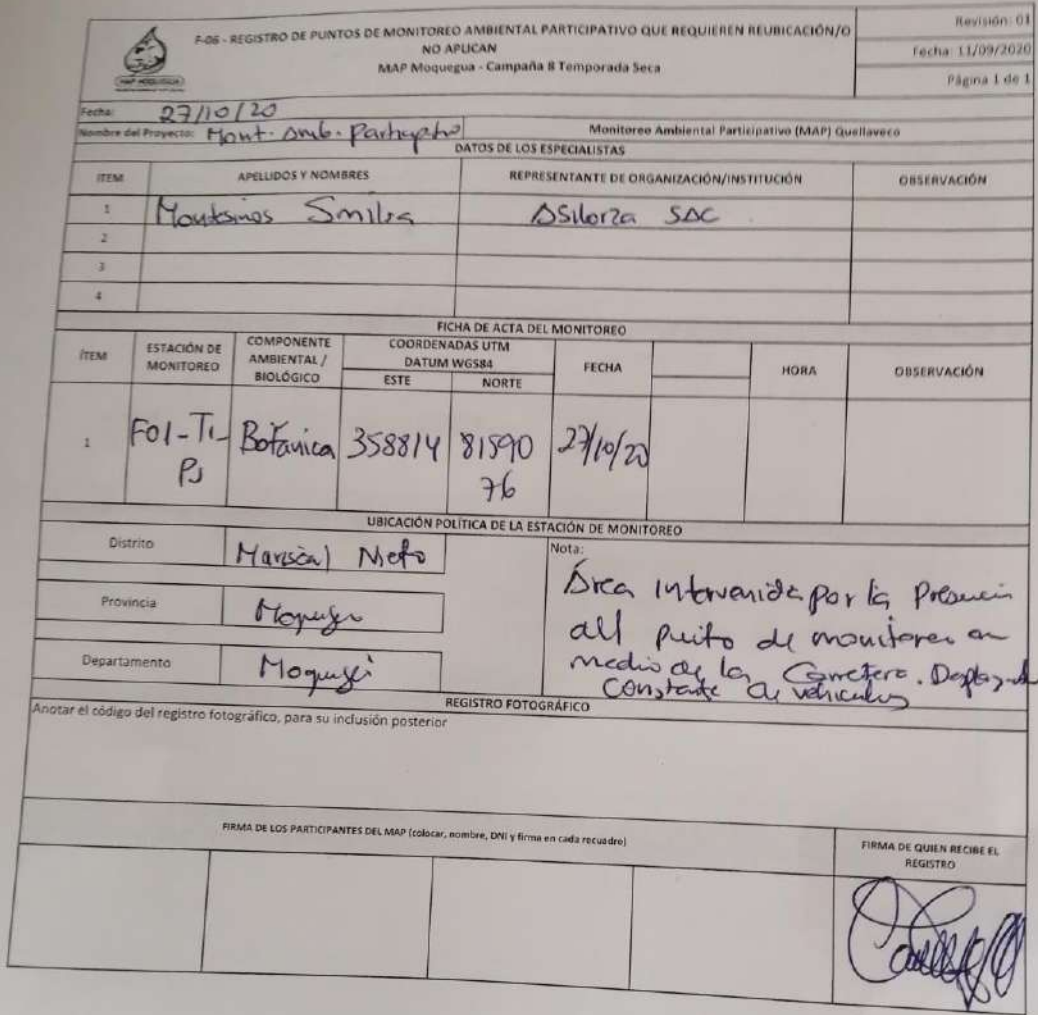 F-06 - REGISTRO DE PUNTOS DE MONITOREO AMBIENTAL PARTICIPATIVO QUE REQUIEREN REUBICACIÓN/O
NO APLICAN
MAP Moquegua - Campaña 8 Temporada Seca
Revisión: 01
Fecha: 11/09/2020
Página 1 de 1
MAP MOQUEGUA
Fecha: 27/10/20
Nombre del Proyecto: Mont. Amb. Monitoreo Ambiental Participativo (MAP) Quellaveco
DATOS DE LOS ESPECIALISTAS
ITEM APELLIDOS Y NOMBRES REPRESENTANTE DE ORGANIZACIÓN/INSTITUCIÓN OBSERVACIÓN
1 Montesinos SAC
2
3
4
FICHA DE ACTA DEL MONITOREO
ÍTEM ESTACIÓN DE MONITOREO COMPONENTE AMBIENTAL / BIOLÓGICO COORDENADAS UTM DATUM WGS84 ESTE NORTE FECHA HORA OBSERVACIÓN
1 F01-T1-PJ Botánica 358814 8159076 27/10/20
UBICACIÓN POLÍTICA DE LA ESTACIÓN DE MONITOREO
Distrito Mariscal Nieto
Provincia
Departamento
Nota:
Área Intervenida por la Presencia
del punto de monitoreo en
medio de la Carretera.
Constante de vehiculos
REGISTRO FOTOGRÁFICO
Anotar el código del registro fotográfico, para su inclusión posterior
FIRMA DE LOS PARTICIPANTES DEL MAP (colocar, nombre, DNI y firma en cada recuadro)
FIRMA DE QUIEN RECIBE EL
REGISTRO